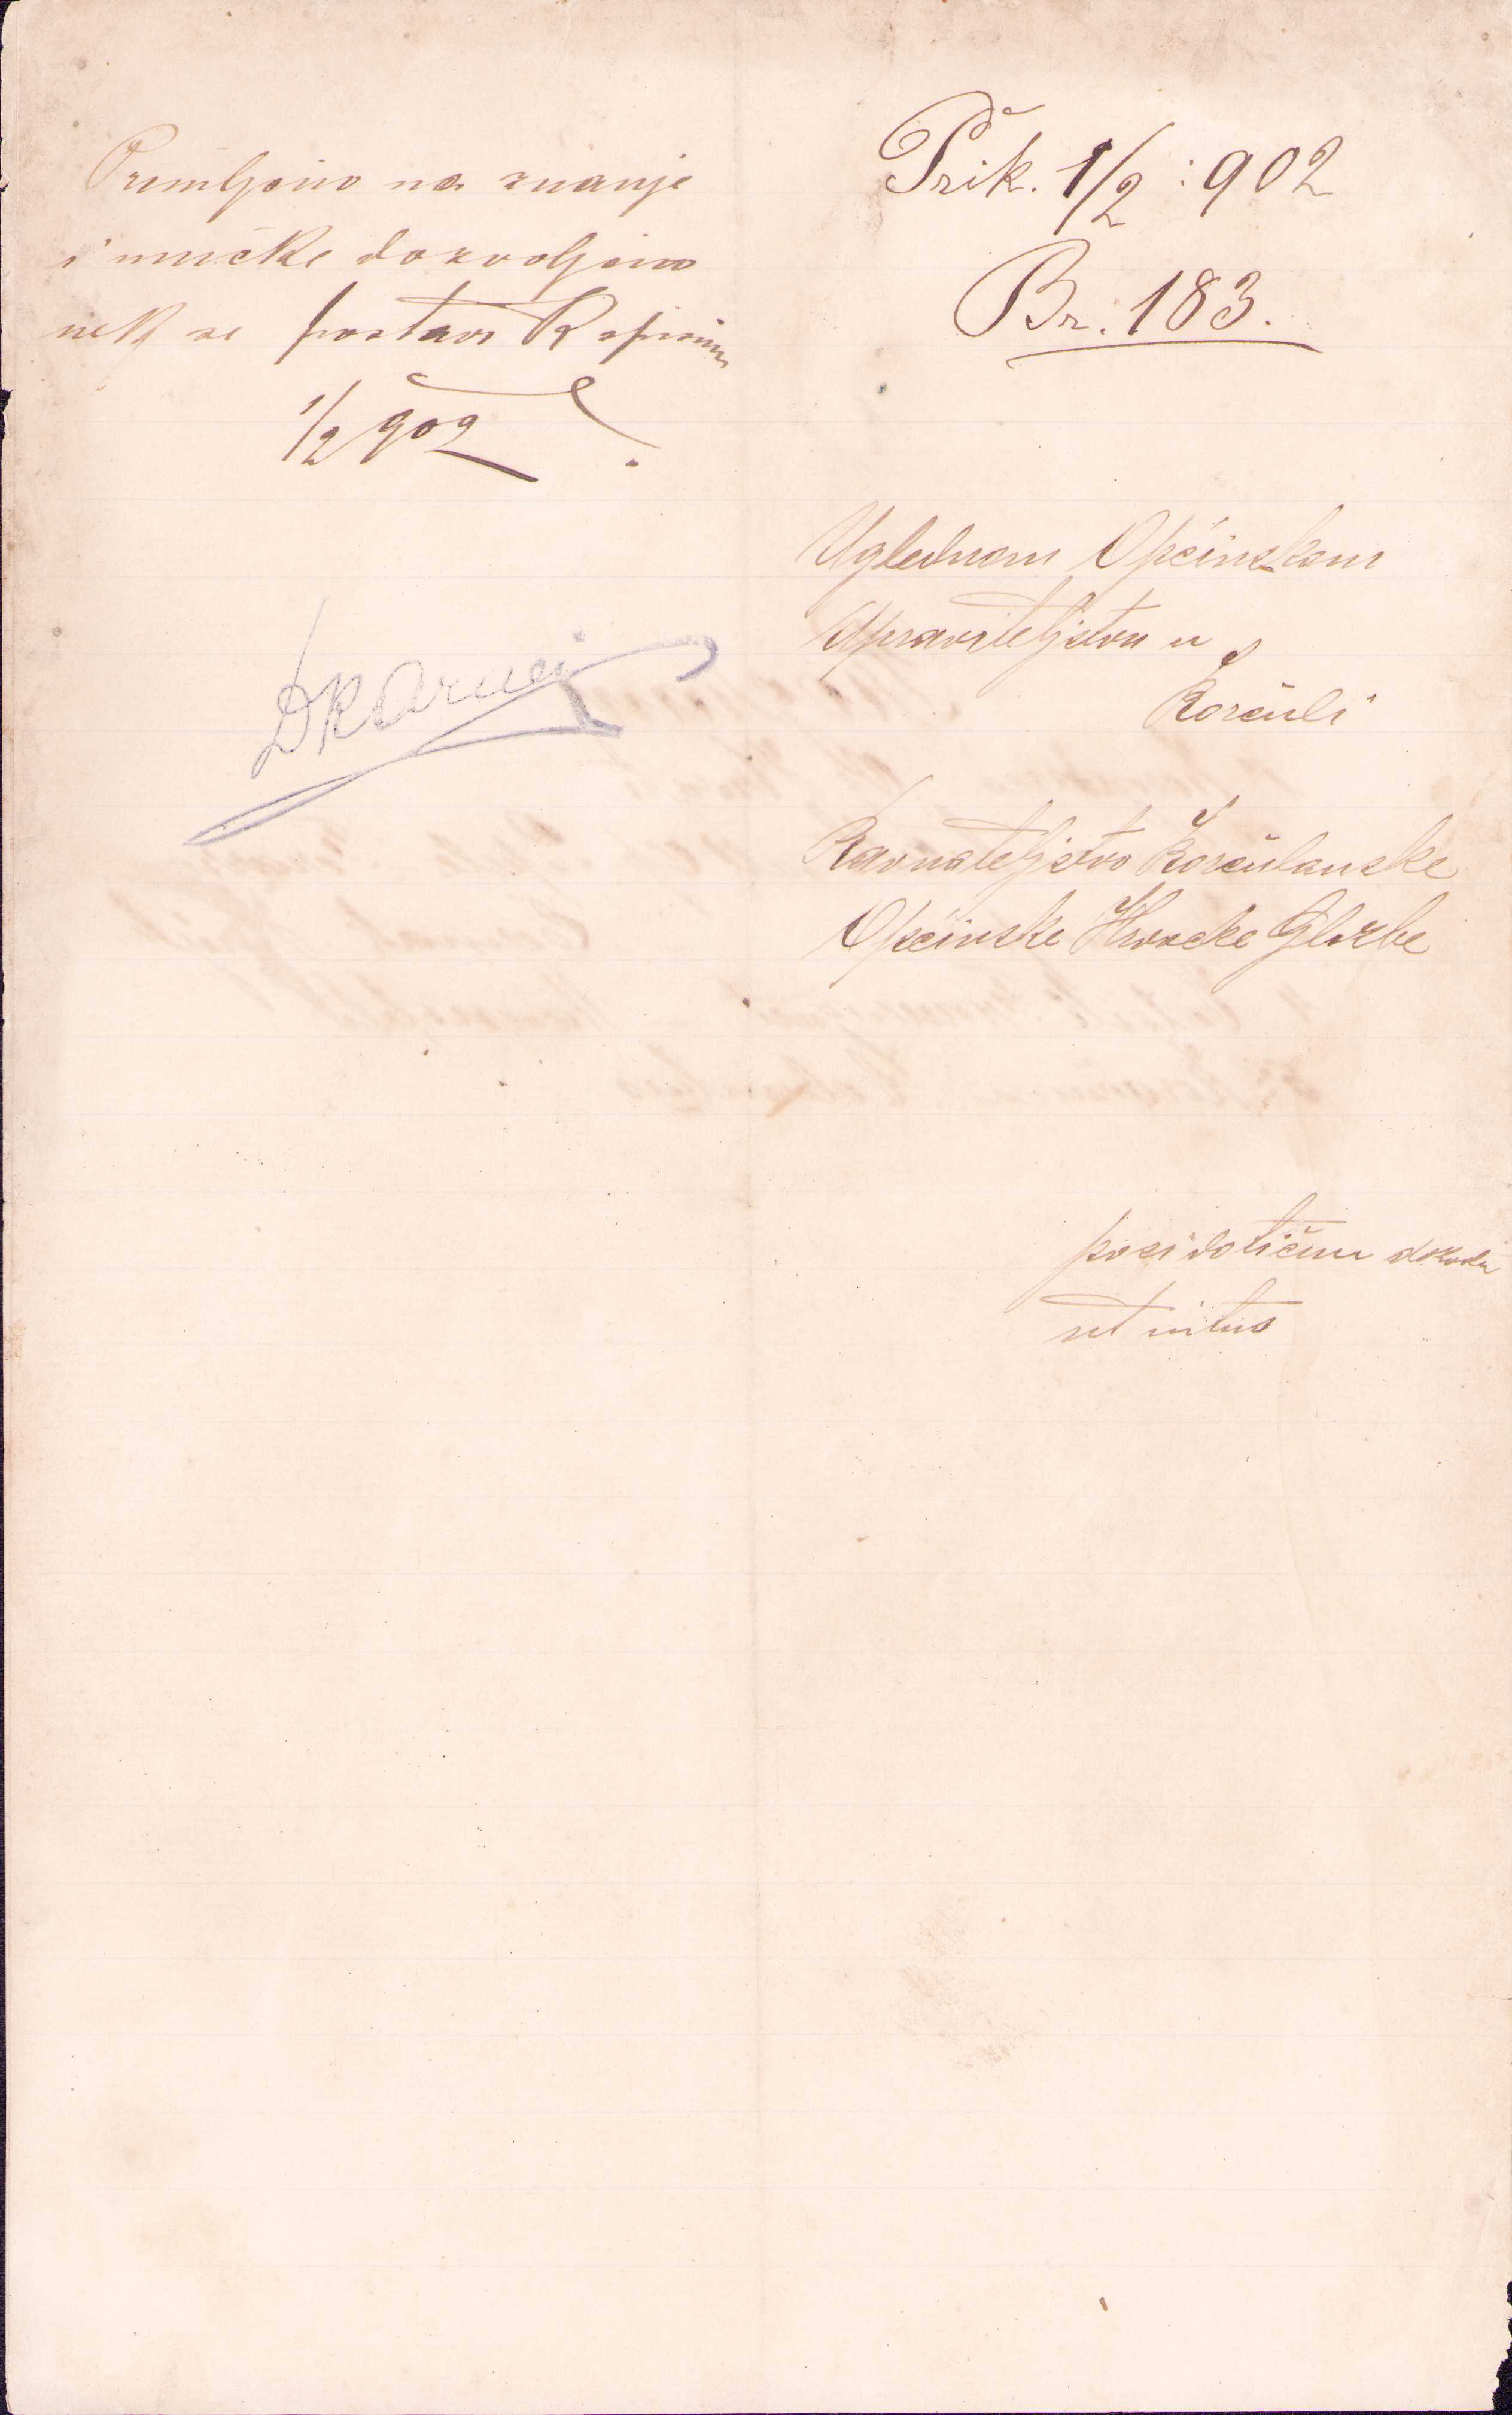 Primljeno na znanje
i mučke dozvoljeno
nek se postavi K spisima
1/2 902
Prik. 1/2 : 902
Br. 183.
Uglednom Općinskom
Upraviteljstvu u
Korčuli
Ravnateljstvo Korčulanske
Općinske Hrvacke Glazbe
dozvolu
ut intus